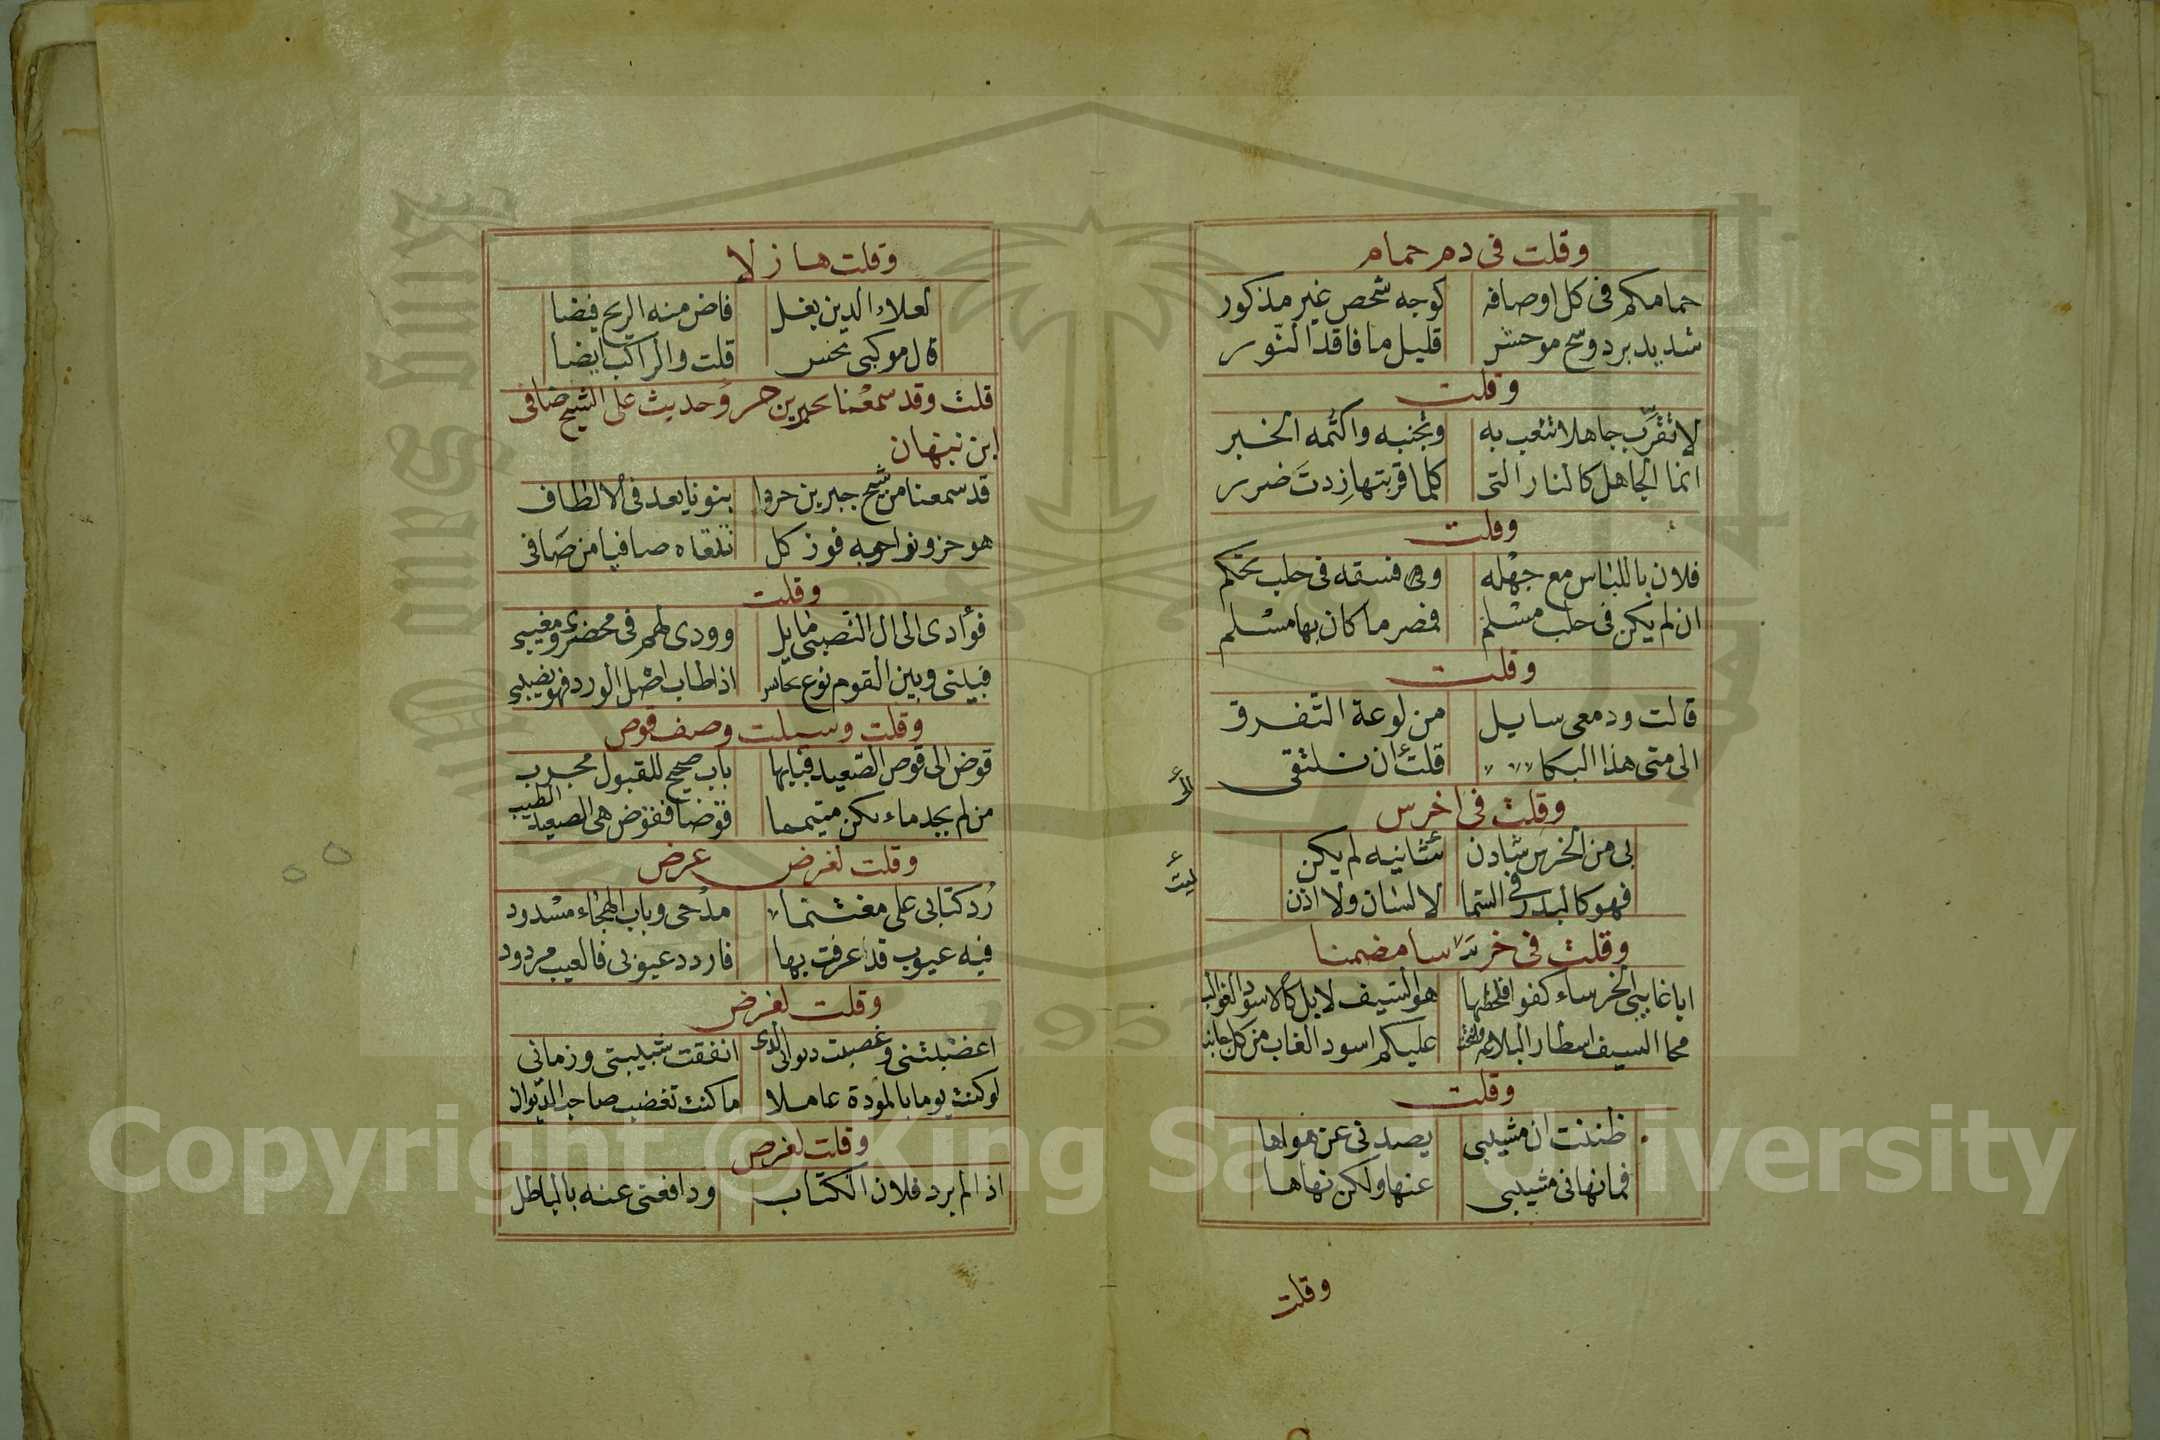 وقلت في دم حمام
حمامكم في كل اوصافه كوجه شخص غير مذكور
شديد برد وسخ موحش قليل ما فاقد النور
وقلت
لا تقرب جاهلا تتعب به وتجنبه واكتمه الخبر
انما الجاهل كالنار التي كلما قربتها زدت ضرر
وقلت
فلان باللباس مع جهله وفي فسقه في حلب تحكم
ان لم يكن في حلب مسلم فمصر ما كان بها مسلم
وقلت
قالت ودمعي سايل من لوعة التفرق
الى متى هذا البكا قلت أن نلتقي
وقلت في اخرس
بي من الخرس شادن ثانيه لم يكن
فهو كالبدر في السما لا لسان ولا اذن
وقلت في خرسا مضمنا
ايا غايبي الخرساء كفوا فلحظها هو السيف لا بل كالاسود الغوالب
محا السيف اسطار البلاغة عليكم اسود الغاب من كل جانب
وقلت
ظننت ان مشيبي يصدني عن هواها
فما نهاني مشيبي عنها ولكن نهاها
وقلت
وقلت هازلا
لعلاء الدين بغل فاض منه الريح فيضا
قال موكبي نحس قلت والراكب ايضا
قلت وقد سمعنا بجبرين حروحديث على الشيخ صافي
ابن نبهان
قد سمعنا من شيخ جبرين حروا بنونا يعد في الالطاف
هو حز ونواحيه فوز كل تلقاه صافيا من صافي
وقلت
فؤادى الى ال النصيبي مايل وودى لهم في محضرى ومغيبي
فبيني وبين القوم نوع تجانس اذا طاب اصل الورد فهو نصيبي
وقلت وسيلت وصف قوص
قوض الى قوص الصعيد فبابها باب صحيح للقبول مجرب
من لم يجد ماء يكن متيمما فوضا ففوض هي الصعيد الطيب
وقلت لغرض عرض
رد كتابي على مغتنما مدحي وباب الهجاء مسدود
فيه عيوب قد اعرفت بها فاردد عيوبي فالعيب مردود
وقلت لغرض
اغضبتني وغصبت ديواني الذى انفقت شبيبتي وزماني
لو كنت يوما بالمودة عاملا ما كنت تغضب صاحب الديوان
وقلت لغرض
اذا لم يرد فلان الكتاب ودافعني عنه بالباطل
Copyright © King Saud University
1957